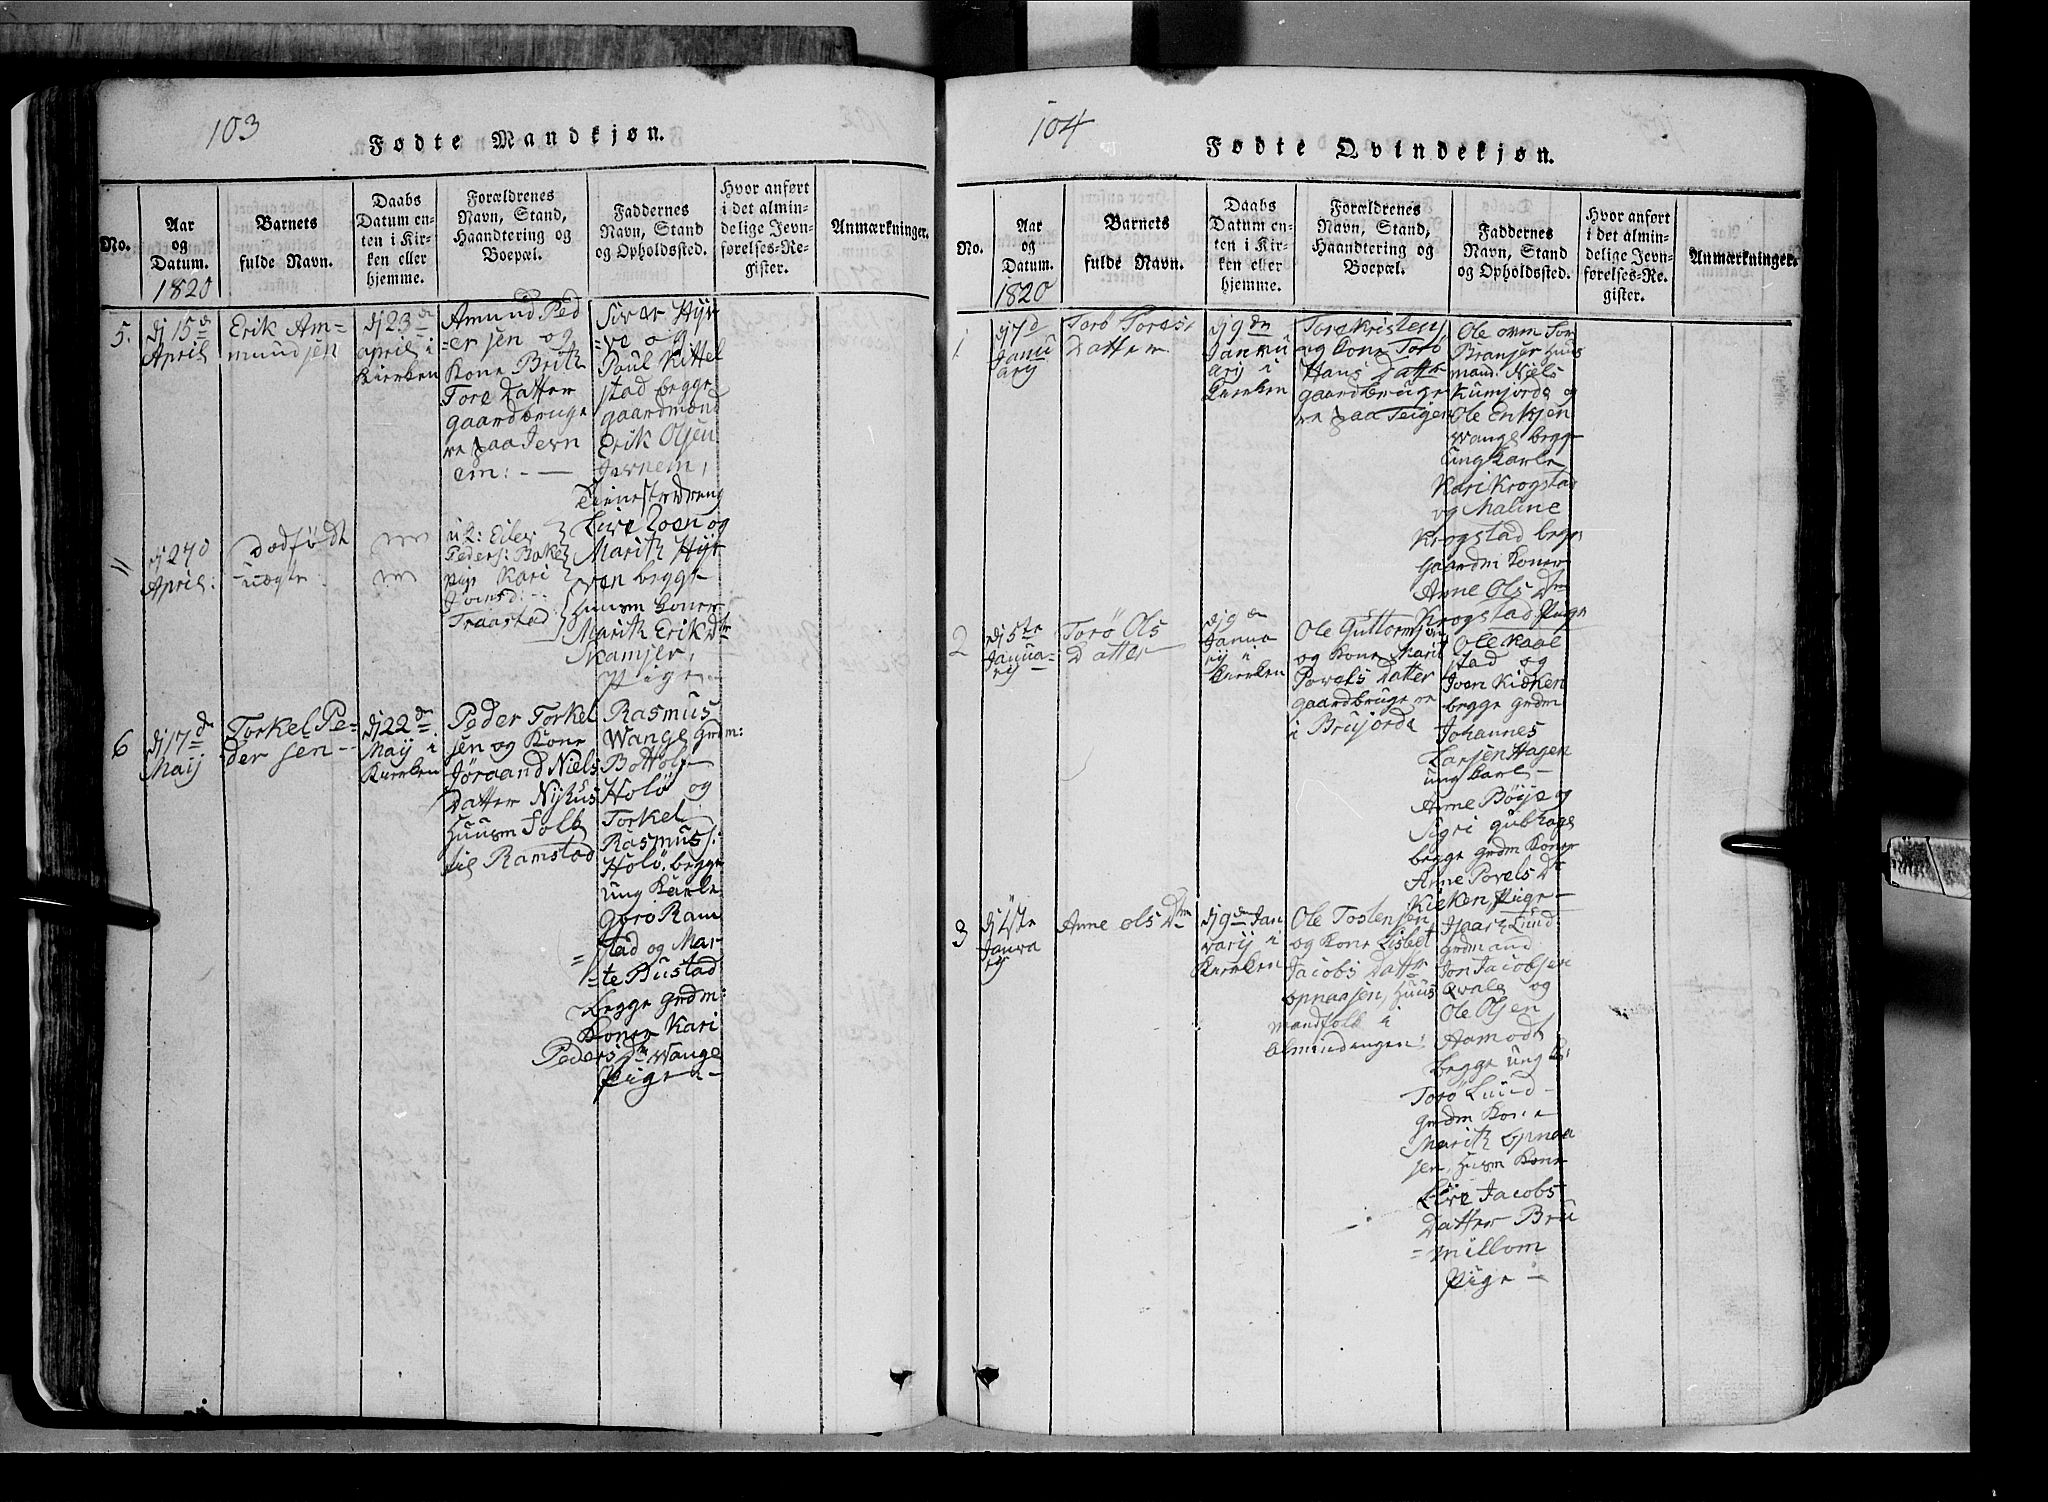 103
Fødte Mandkjøn.
No.
Aar
og
Datum.
1820
Barnets
fulde Navn.
Daabs
Datum en-
ten i Kir-
ken eller
hjemme.
Forældrenes
Navn, Stand,
Haandtering og
Boepæl.
Faddernes
Navn, Stand
og Opholdssted.
Hvor anført
i det almin-
delige Jevn-
førelses-Re-
gister.
Anmærkninger.
5.
dj 15 d
April
Erik Am-
mundsen
dj 23 de
april i
Kierken
Amund Ped
=ersen og
Kone Brith
Tore Datter
gaardbruge
re paa Jevn
em: - —
Siver Hyr
=ve og
Paul Kittel
stad begge
gaardmænd
Erik Olsen
Jevnem,
Tienestedreng
Live Loen og
Marith Hyr
ven begge
Huusm Koner
Marith Erik Dtr
Skamser,
Pige -
"
dj 27 d
April:
dødfødt
uægte
u2: Eiler
Peders: Bake
pige Kari
Joensd: -
Traastad
6
dj 17 de
Maij
Torkel Pe-
dersen --
dj 22 de
Maij i
Kierken
Peder Torkel
sen og Kone
Jøraand Niels
Datter Nyhus
Huusm folk
til Ramstad
Rasmus
Wange grdm:
Bottolf
Holø og
Torkel
Rasmuss:
Holø, begge
ung Karle
Goro Ram
=stad og Mar-
=te Bustad
begge grdm:
Koner Kari
Peders Dtr Wange
Pige -
104
Fødte Qvindekjøn.
No.
Aar
og
Datum.
1820
Barnets
fulde Navn.
Daabs
Datum en-
ten i Kir-
ken eller
hjemme.
Forældrenes
Navn, Stand,
Haandtering og
Boepæl.
Faddernes
Navn, Stand
og Opholdssted.
Hvor anført
i det almin-
delige Jevn-
førelses-Re-
gister.
Anmærkninger.
1
dj 7 d
Janu
arij
Torø Tores
Datter
dj 9 den
Janvu
arij i
Kierken
Tore Kristens
og kone Torø
Hans Datter
gaardbruge
re paa Teigen
Ole
Huus
mand. Niels
og
Ole Eriksen
Wange begge
ung Karle
Kari Krogstad
og Maline
Krogstad begge
gaardm Koner
Anne Ols Dtr
Krogstad Pige
2
dj 5te
Janua=
rij
Torø Ols
Datter
dj 9 de
Janua
rij i
Kierken
Ole Guttormsen
og Kone Marit
Povels Datter
gaardbrugere
i Brujorde
Ole Kaal
stad og
Iven Kieken
begge grdm
Johannes
Larsen Hagen
ung Karl -
Anne Bøije og
Sigri Gubhage
begge grdm Koner
Arne Povels Dtr
Kieken Pige -
3
dj 1ste
Janua
rij
Anne Ols Dtr
dj 9 de Jan
varij i
Kierken
Ole Tostensen
og Kone Lisbet
Jacobs Datter
Opnaasen, Huus
mandfolk i
Almindingen:
Isaach Lund:
grdmand
Jon Jacobsen
Qvale og
Ole Olsen
Aamodt
begge ung K:
Torø Lund -
grdm Kone
Marith Opnaa
sen, Husm Kone
Live Jacobs
Datter Bru
=millom
Pige -